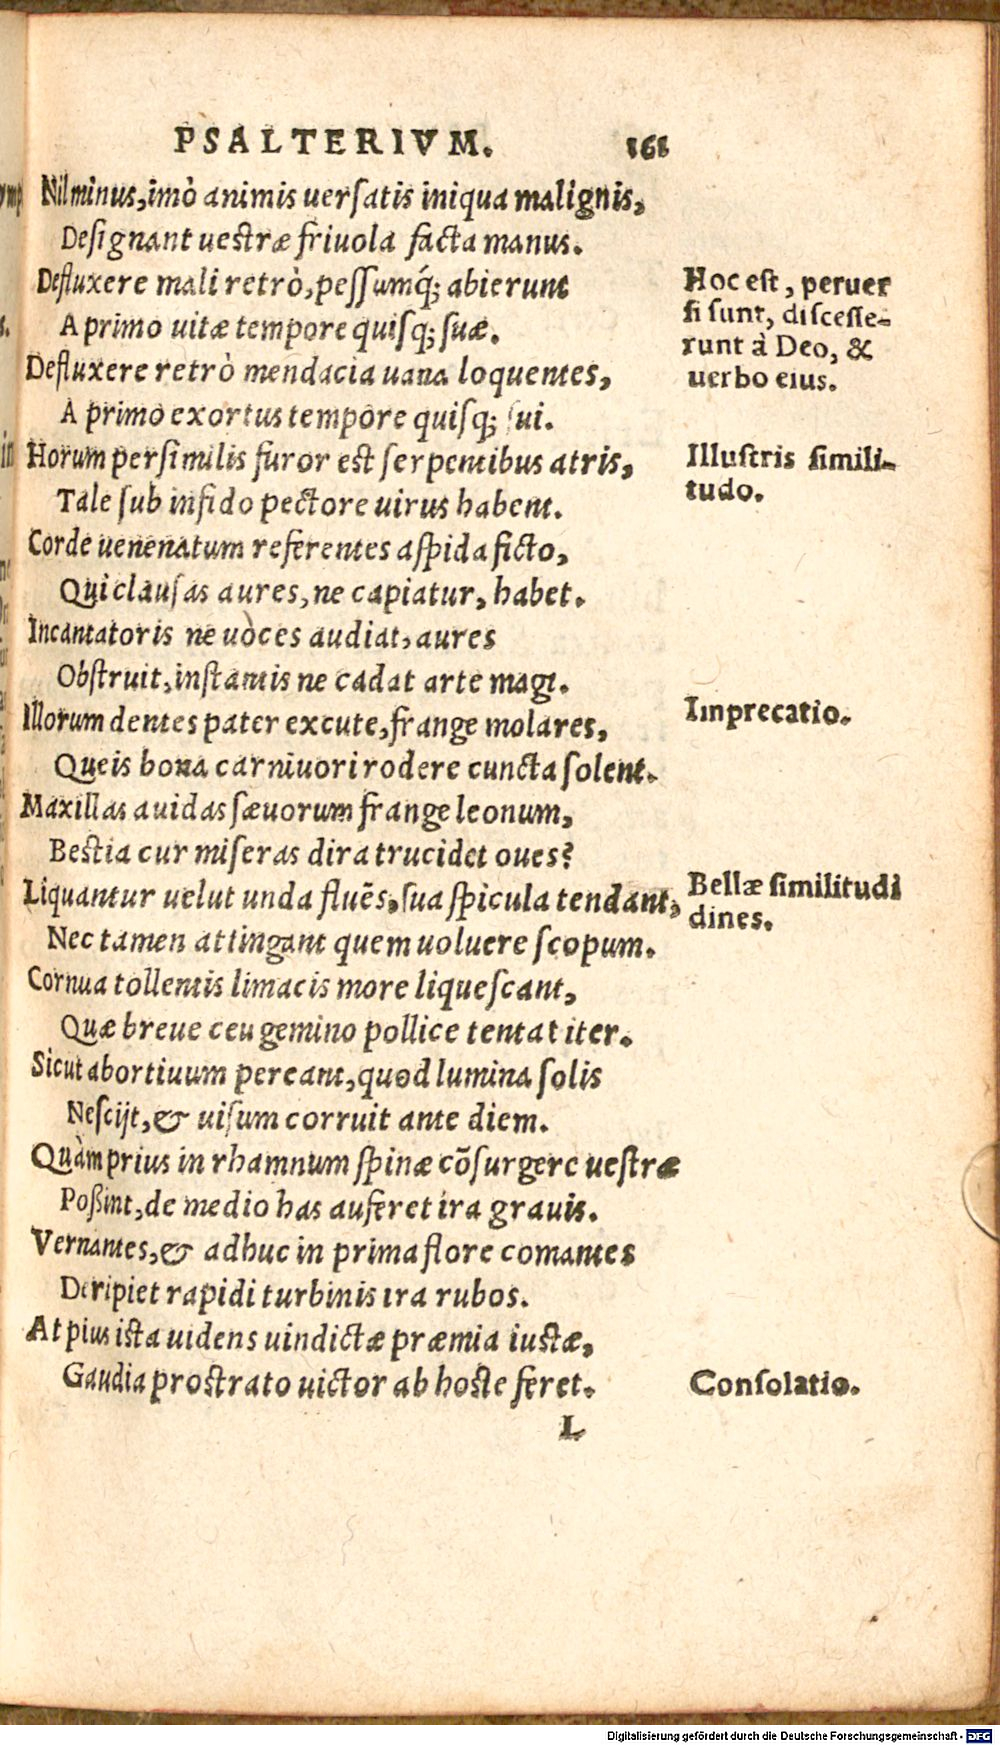 PSALTERIVM. 161
Nil minus, imò animis uersatis iniqua malignis,
Designant uestræ friuola facta manus.
Defluxere mali retrò, pessumq́; abierunt
A primo uitæ tempore quisq; suæ.
Defluxere retrò mendacia uana loquentes,
A primo exortus tempore quisq; sui.
Horum persimilis furor est serpentibus atris,
Tale sub infido pectore uirus habent.
Corde uenenatum referentes aspida ficto,
Qui clausas aures, ne capiatur, habet.
Incantatoris ne uoces audiat, aures
Obstruit, instantis ne cadat arte magi.
Illorum dentes pater excute, frange molares,
Queis bona carniuori rodere cuncta solent.
Maxillas auidas sæuorum frange leonum,
Bestia cur miseras dira trucidet oues?
Liquantur uelut unda fluẽs, sua spicula tendant,
Nec tamen attingant quem uoluere scopum.
Cornua tollentis limacis more liquescant,
Quæ breue ceu gemino pollice tentat iter.
Sicut abortiuum pereant, quod lumina solis
Nescijt, & uisum corruit ante diem.
Quàm prius in rhamnum spinæ cõsurgere uestræ
Poßint, de medio has auferet ira grauis.
Vernantes, & adhuc in prima flore comantes
Deripiet rapidi turbinis ira rubos.
At pius ista uidens uindictæ præmia iustæ,
Gaudia prostrato uictor ab hoste feret.
L
Hoc est, peruer
si sunt, discesse-
runt à Deo, &
uerbo eius.
Illustris simili-
tudo.
Imprecatio.
Bellæ similitudi
dines.
Consolatio.
Digitalisierung gefördert durch die Deutsche Forschungsgemeinschaft - DFG